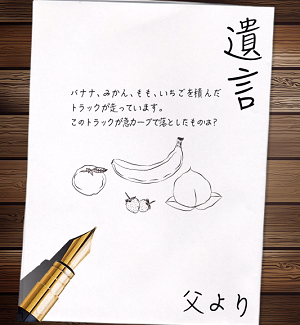 遺言
バナナ、みかん、もも、いちごを積んだ
トラックが走っています。
このトラックが急カーブで落としたものは?
父より